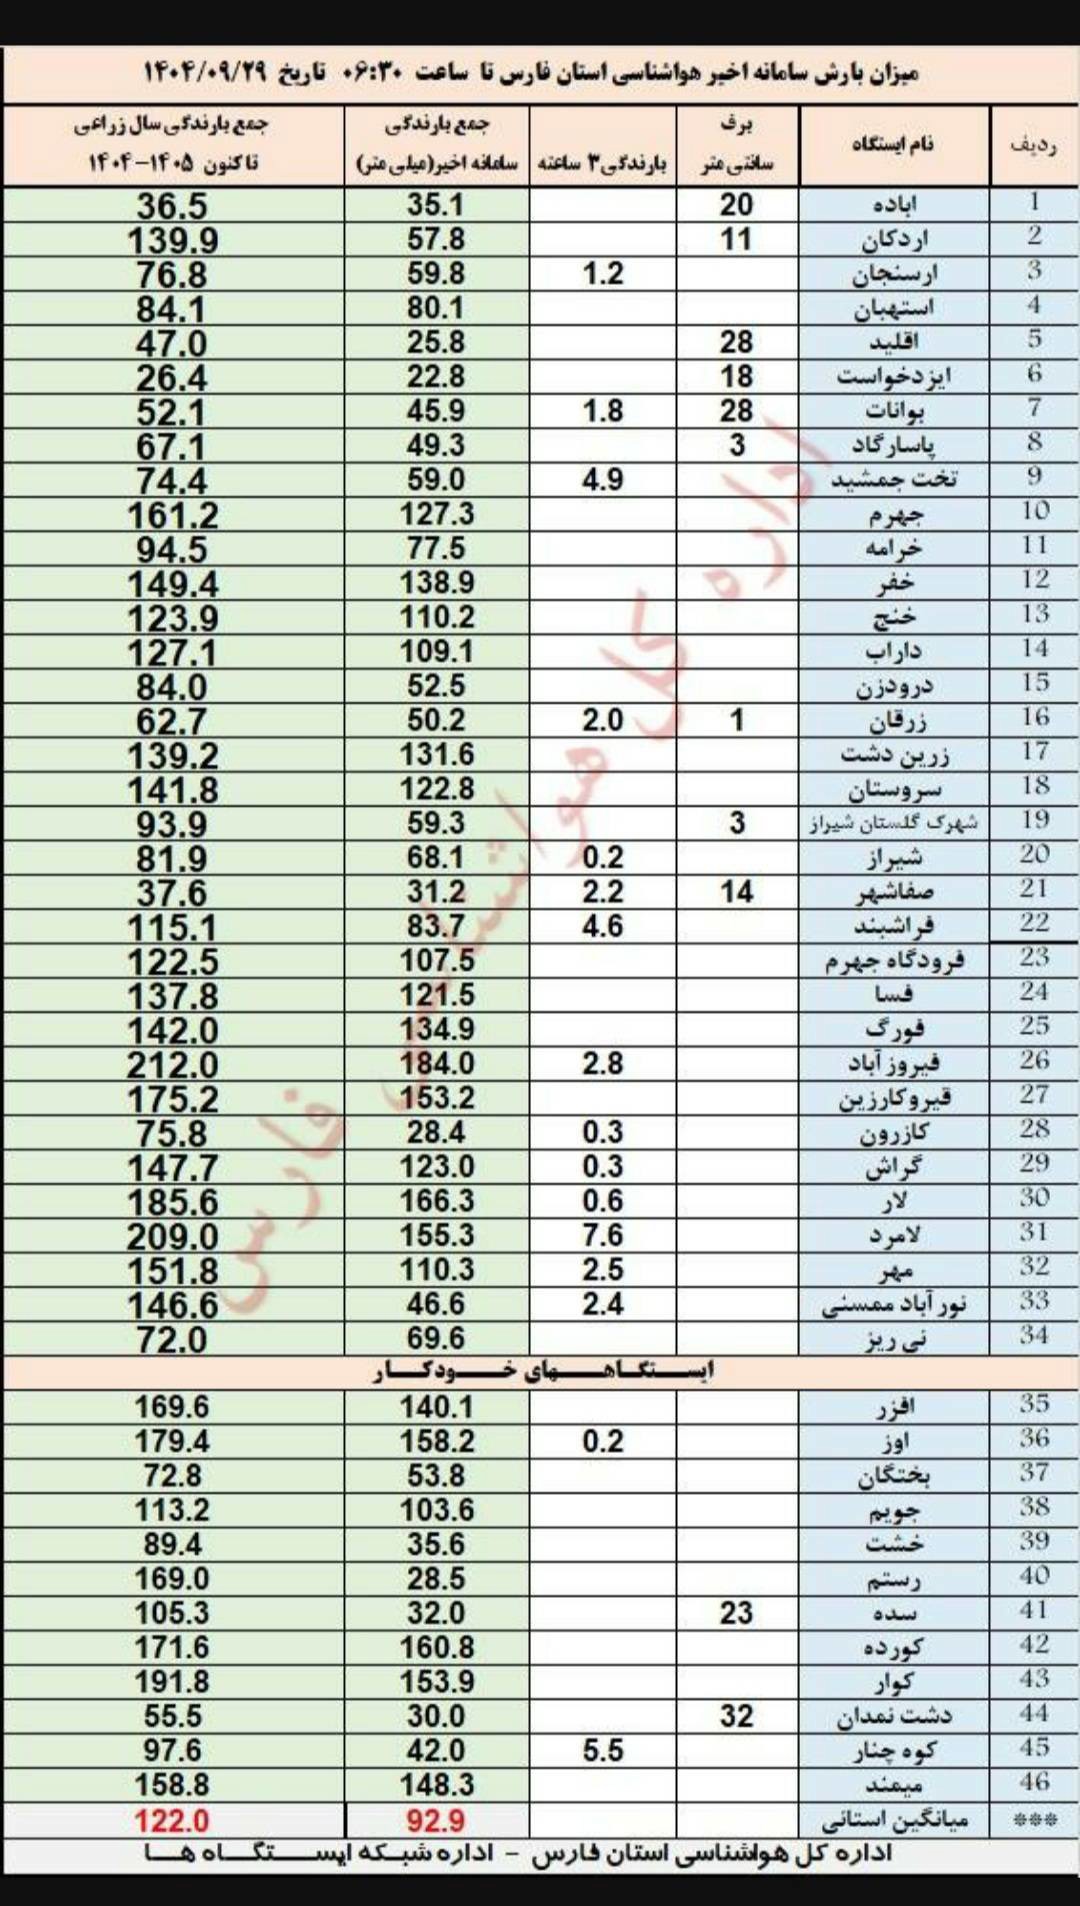 میزان بارش سامانه اخیر هواشناسی استان فارس تا ساعت ۰۶:۳۰ تاریخ ۱۴۰۴/۰۹/۲۹
ردیف نام ایستگاه برف سانتی متر بارندگی۳ ساعته جمع بارندگی سامانه اخیر(میلی متر) جمع بارندگی سال زراعی تا کنون ۱۴۰۵-۱۴۰۴
1 اباده 20 35.1 36.5
2 اردکان 11 57.8 139.9
3 ارسنجان 1.2 59.8 76.8
4 استهبان 80.1 84.1
5 اقلید 28 25.8 47.0
6 ایزدخواست 18 22.8 26.4
7 بوانات 28 1.8 45.9 52.1
8 پاسارگاد 3 49.3 67.1
9 تخت جمشید 4.9 59.0 74.4
10 جهرم 127.3 161.2
11 خرامه 77.5 94.5
12 خفر 138.9 149.4
13 خنج 110.2 123.9
14 داراب 109.1 127.1
15 درودزن 52.5 84.0
16 زرقان 1 2.0 50.2 62.7
17 زرین دشت 131.6 139.2
18 سروستان 122.8 141.8
19 شهرک گلستان شیراز 3 59.3 93.9
20 شیراز 0.2 68.1 81.9
21 صفاشهر 14 2.2 31.2 37.6
22 فراشبند 4.6 83.7 115.1
23 فرودگاه جهرم 107.5 122.5
24 فسا 121.5 137.8
25 فورگ 134.9 142.0
26 فیروز آباد 2.8 184.0 212.0
27 قیروکارزین 153.2 175.2
28 کازرون 0.3 28.4 75.8
29 گراش 0.3 123.0 147.7
30 لار 0.6 166.3 185.6
31 لامرد 7.6 155.3 209.0
32 مهر 2.5 110.3 151.8
33 نور آباد ممسنی 2.4 46.6 146.6
34 نی ریز 69.6 72.0
ایستگاههای خودکار
35 افزر 140.1 169.6
36 اوز 0.2 158.2 179.4
37 بختگان 53.8 72.8
38 جویم 103.6 113.2
39 خشت 35.6 89.4
40 رستم 28.5 169.0
41 سده 23 32.0 105.3
42 کورده 160.8 171.6
43 کوار 153.9 191.8
44 دشت نمدان 32 30.0 55.5
45 کوه چنار 5.5 42.0 97.6
46 میمند 148.3 158.8
*** میانگین استانی 92.9 122.0
اداره کل هواشناسی استان فارس - اداره شبکه ایستگاه ها
اداره کل هواشناسی فارس